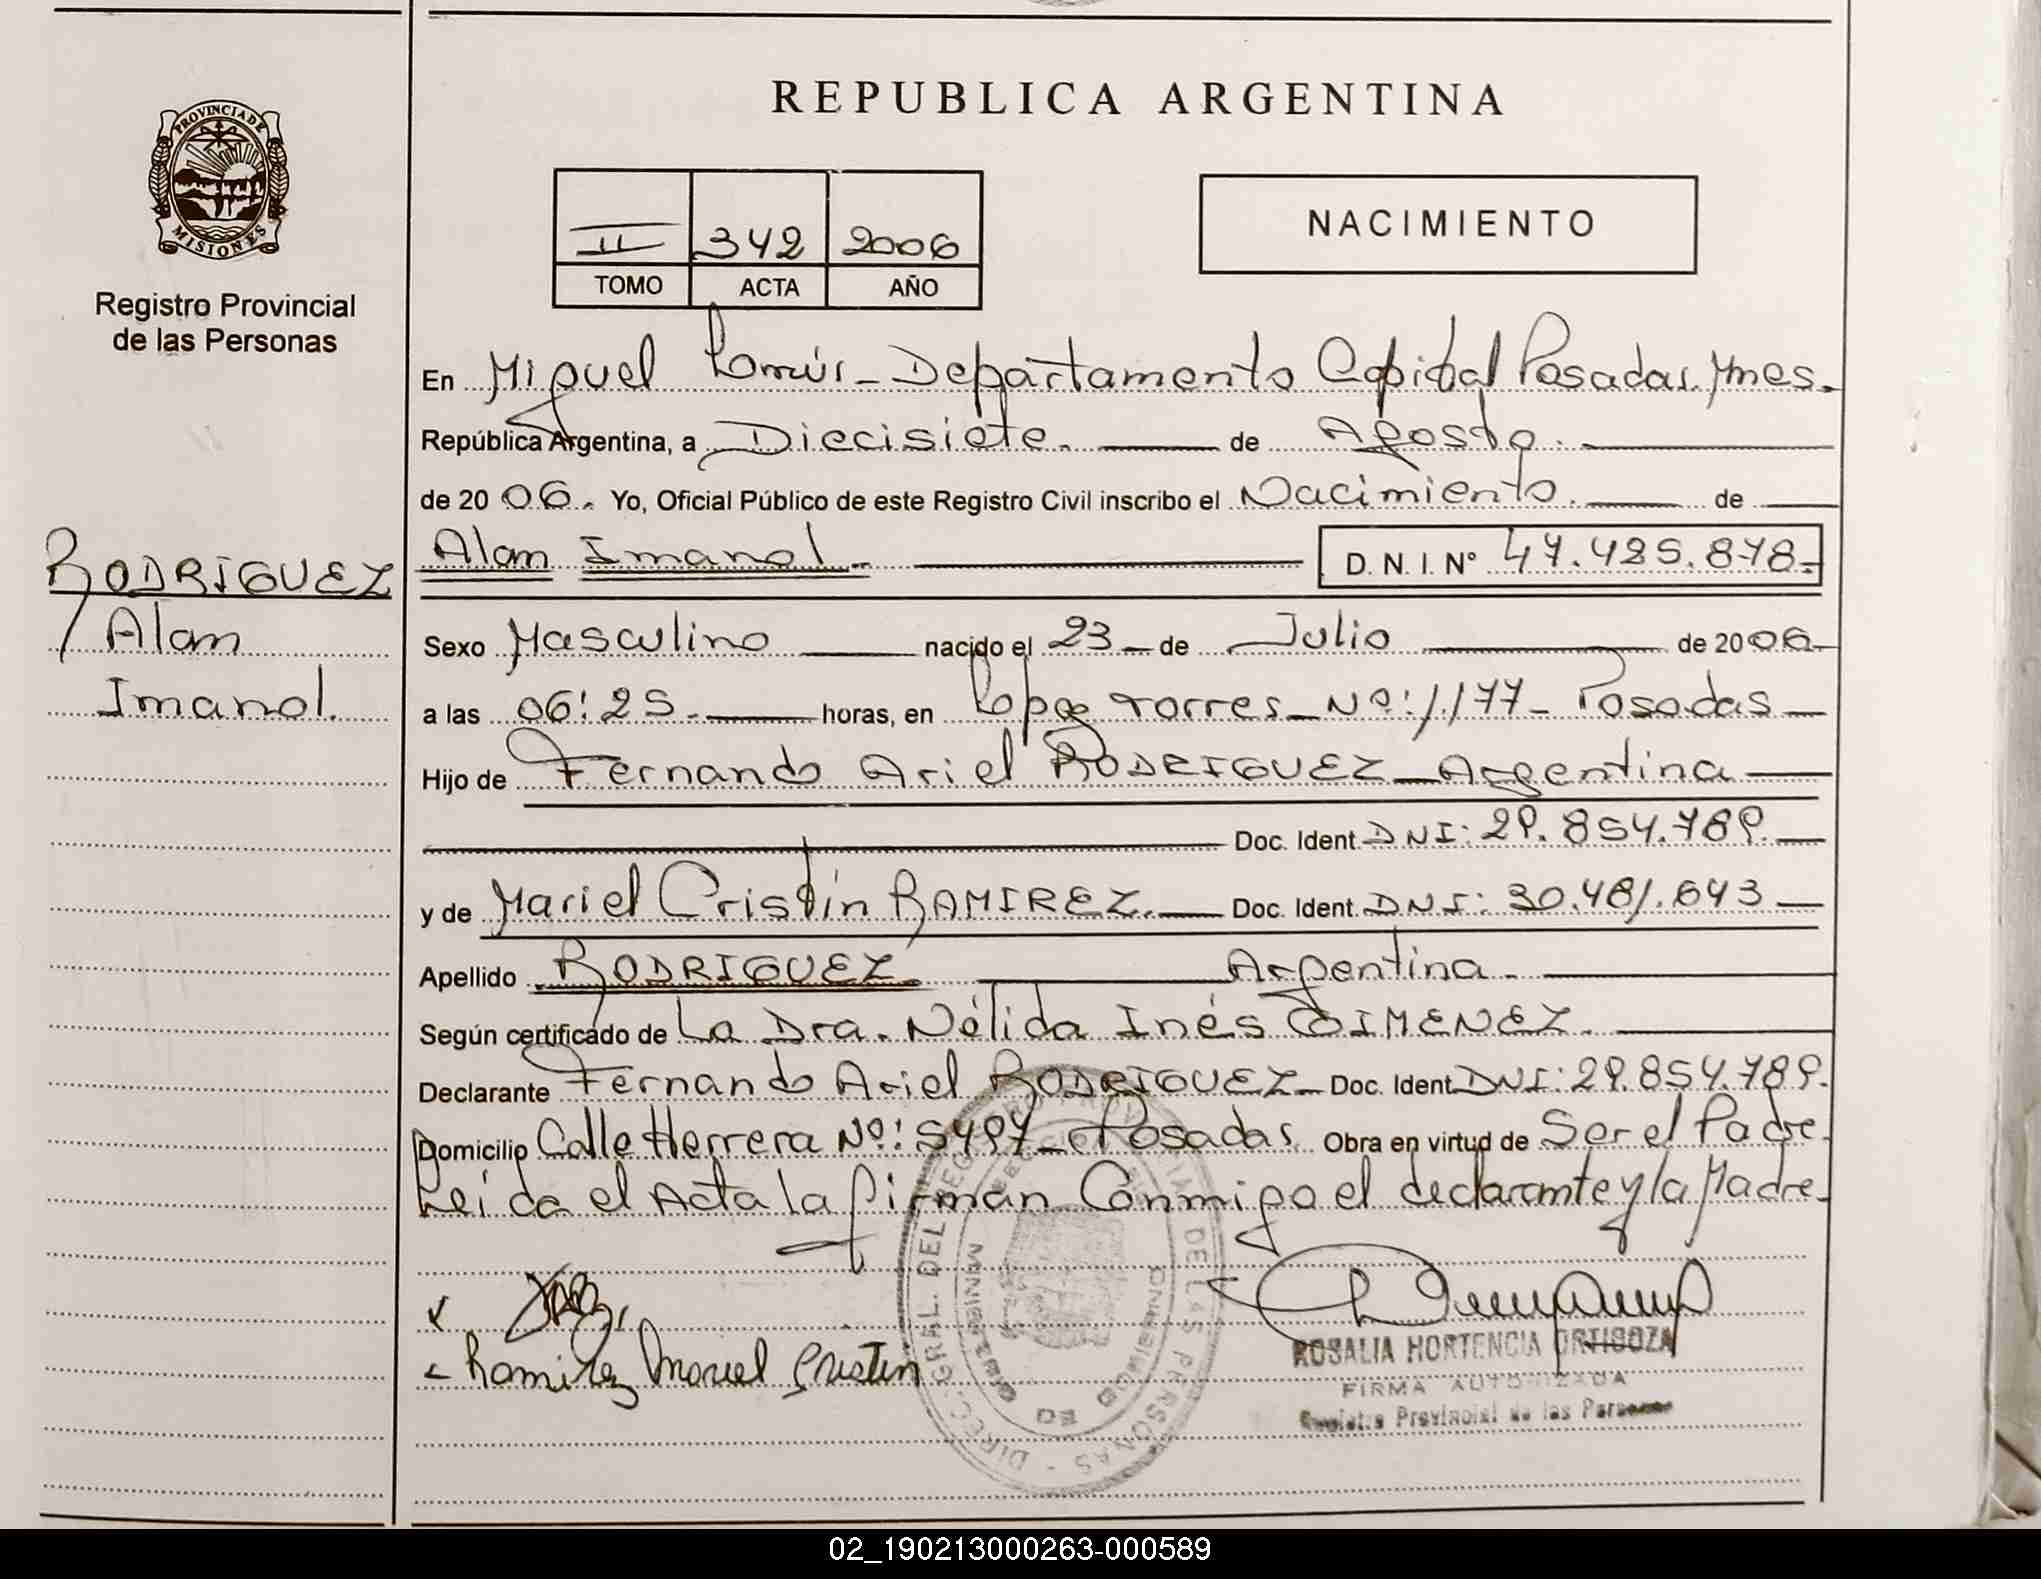 PROVINCIA DE
MISIONES
Registro Provincial
de las Personas
RODRIGUEZ
Alan
Imanol.
REPUBLICA ARGENTINA
II 342 2006
TOMO ACTA AÑO
NACIMIENTO
En Miguel Lanús - Departamento Capital Posadas. Mnes.
República Argentina, a Diecisiete. de Agosto.
de 20 06. Yo, Oficial Público de este Registro Civil inscribo el Nacimiento. de
Alan Imanol. D. N. I. N° 47.425.878.
Sexo Masculino nacido el 23 de Julio de 2006
a las 06:25. horas, en Lopez Torres - Nº: 1177 - Posadas
Hijo de Fernando Ariel RODRIGUEZ Argentina
Doc. Ident. DNI: 29.854.789.
y de Mariel Cristín RAMIREZ. Doc. Ident. DNI: 30.481.643
Apellido RODRIGUEZ. Argentina.
Según certificado de La Dra. Nélida Inés GIMENEZ.
Declarante Fernando Ariel RODRIGUEZ Doc. Ident. DNI: 29.854.789.
Domicilio Calle Herrera Nº: 5497 - Posadas. Obra en virtud de Ser el Padre.
Leída el Acta la firman Conmigo el declarante y la Madre.
Ramirez Mariel Cristin
ROSALIA HORTENCIA ORTIGOZA
FIRMA AUTORIZADA
Registro Provincial de las Personas
DIREC. GRAL. DEL REGISTRO PROVINCIAL DE LAS PERSONAS
02_190213000263-000589